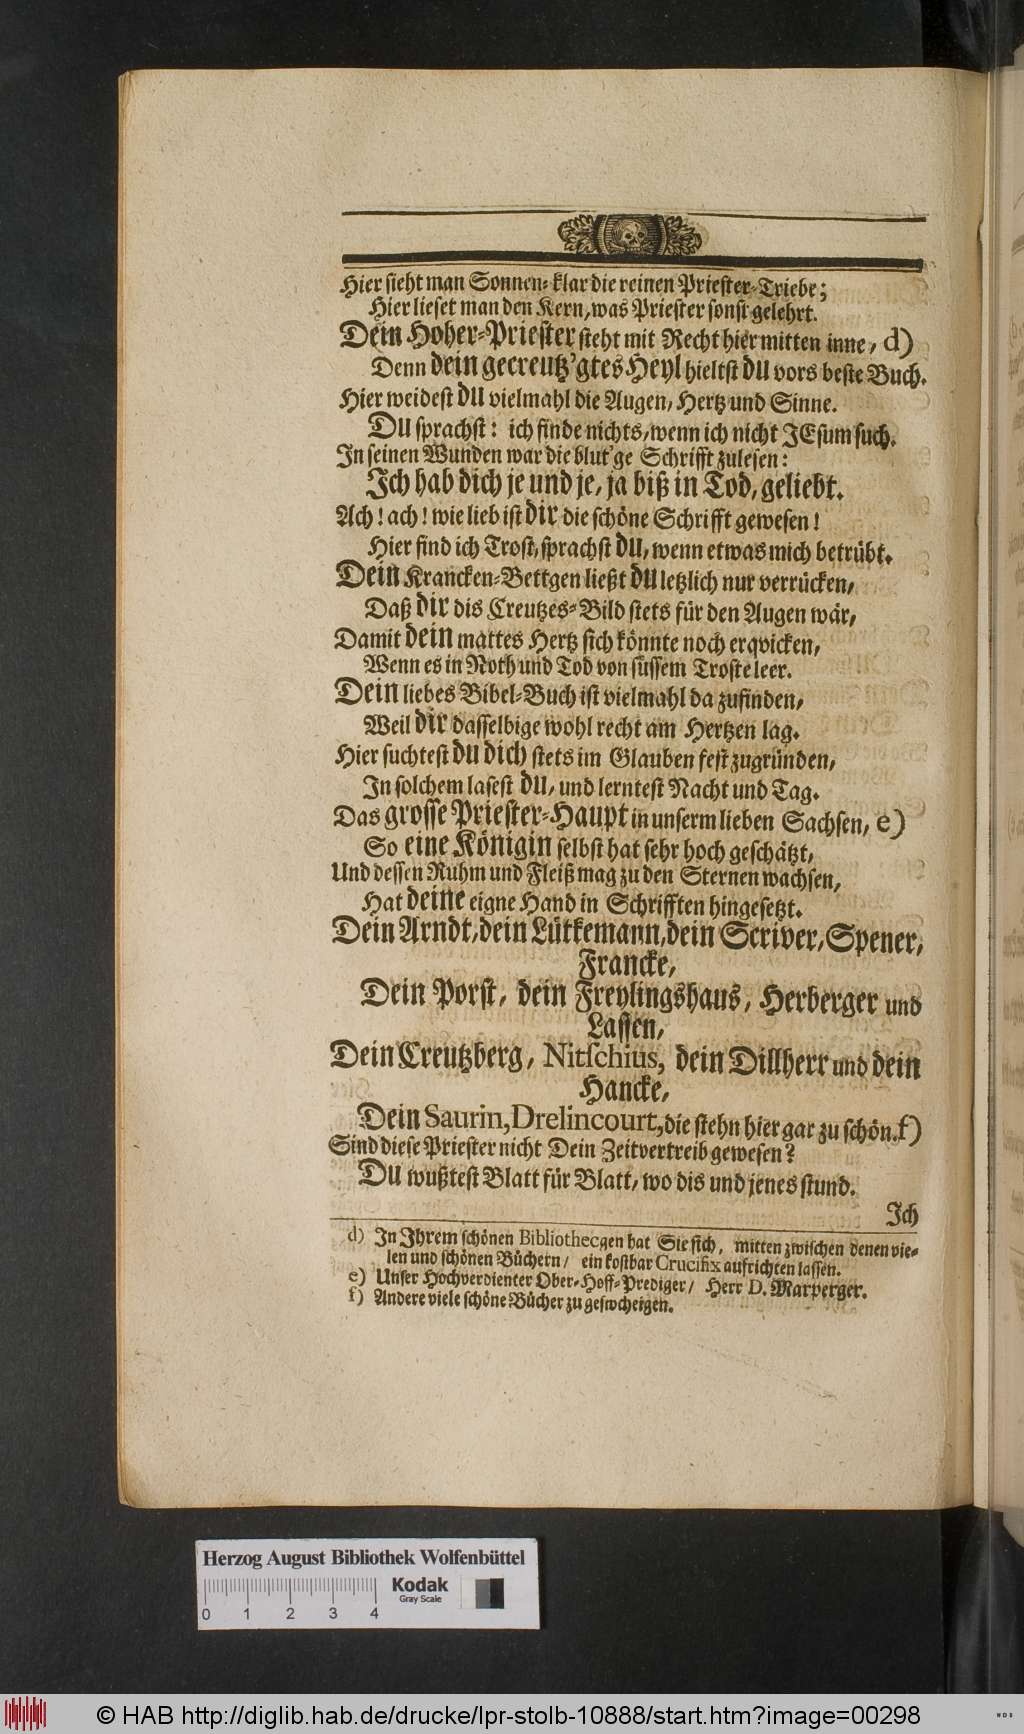 Hier sieht man Sonnen-klar die reinen Priester-Triebe;
Hier lieset man den Kern, was Priester sonst gelehrt.
Dein Hoher-Priester steht mit Recht hier mitten inne, d)
Denn dein gecreutz'gtes Heyl hieltst du vors beste Buch.
Hier weidest du vielmahl die Augen, Hertz und Sinne.
Du sprachst: ich finde nichts, wenn ich nicht JEsum such.
In seinen Wunden war die blut'ge Schrifft zulesen:
Ich hab dich je und je, ja biß in Tod, geliebt.
Ach! ach! wie lieb ist dir die schöne Schrifft gewesen!
Hier find ich Trost, sprachst du, wenn etwas mich betrübt.
Dein Krancken-Bettgen ließt du letzlich nur verrücken,
Daß dir dis Creutzes-Bild stets für den Augen wär,
Damit dein mattes Hertz sich könnte noch erqvicken,
Wenn es in Noth und Tod von süssem Troste leer.
Dein liebes Bibel-Buch ist vielmahl da zufinden,
Weil dir dasselbige wohl recht am Hertzen lag.
Hier suchtest du dich stets im Glauben fest zugründen,
In solchem lasest du, und lerntest Nacht und Tag.
Das grosse Priester-Haupt in unserm lieben Sachsen, e)
So eine Königin selbst hat sehr hoch geschätzt,
Und dessen Ruhm und Fleiß mag zu den Sternen wachsen,
Hat deine eigne Hand in Schrifften hingesetzt.
Dein Arndt, dein Lütkemann, dein Scriver, Spener,
Francke,
Dein Porst, dein Freylingshaus, Herberger und
Lassen,
Dein Creutzberg, Nitschius, dein Dillherr und dein
Hancke,
Dein Saurin, Drelincourt, die stehn hier gar zu schön. f)
Sind diese Priester nicht Dein Zeitvertreib gewesen?
Du wußtest Blatt für Blatt, wo dis und jenes stund.
Ich
d) In Ihrem schönen Bibliothecgen hat Sie sich, mitten zwischen denen vie-
len und schönen Büchern, ein kostbar Crucifix aufrichten lassen.
e) Unser Hochverdienter Ober-Hoff-Prediger, Herr D. Marperger.
f) Andere viele schöne Bücher zu geswcheigen.
Herzog August Bibliothek Wolfenbüttel
Kodak
Gray Scale
0 1 2 3 4
© HAB http://diglib.hab.de/drucke/lpr-stolb-10888/start.htm?image=00298